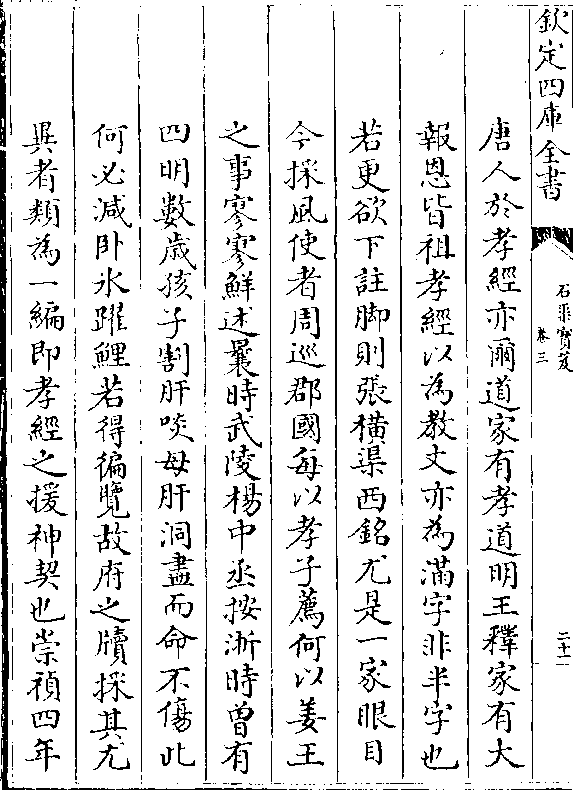 欽定四庫全書
石渠寶笈
卷三
二十二
唐人於孝經亦爾道家有孝道明王釋家有大
報恩皆祖孝經以為教文亦為滿字非半字也
若更欲下註脚則張橫渠西銘尤是一家眼目
今採風使者周巡郡國每以孝子薦何以姜王
之事寥寥鮮述曩時武陵楊中丞按浙時曾有
四明數歲孩子割肝啖母肝洞盡而命不傷此
何必減卧氷躍鯉若得徧覽故府之牘採其尤
異者類為一編即孝經之援神契也崇禎四年